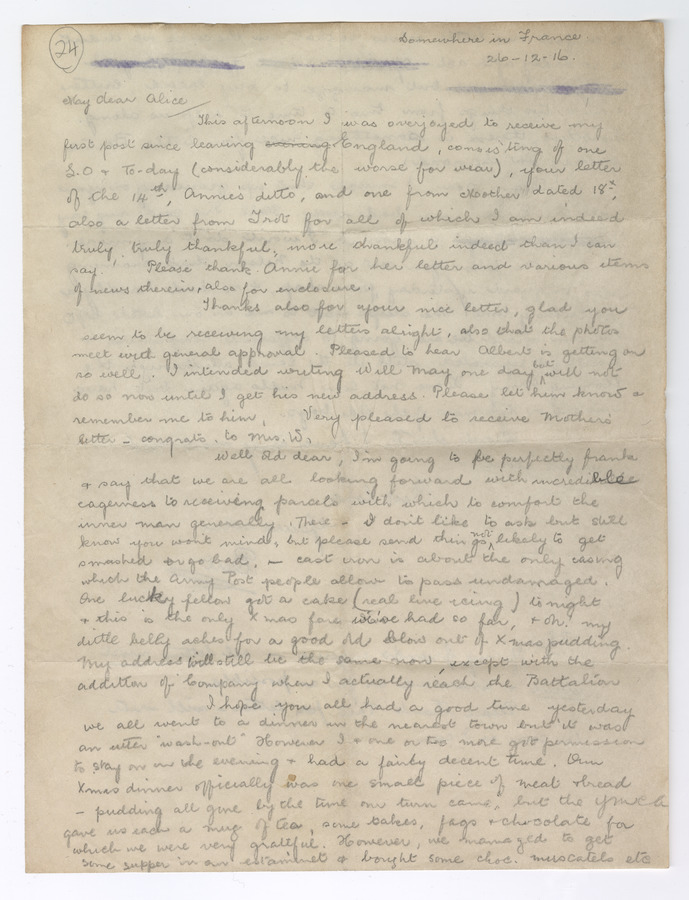 24
Somewhere in France.
26-12-16.
My dear Alice
This afternoon I was overjoyed to receive my
first post since leaving evening England, consisting of one
S.O & To-day (considerably the worse for wear), your letter
of the 14th, Annie's ditto, and one from Mother dated 18th,
also a letter from Trot for all of which I am indeed
truly, truly thankful, more thankful indeed than I can
say. Please thank Annie for her letter and various items
of news therein, also for enclosure.
Thanks also for your nice letter, glad you
seem to be receiving my letters alright, also that the photos
meet with general approval. Pleased to hear Albert is getting on
so well. I intended writing Will May one day but will not
do so now until I get his new address. Please let him know &
remember me to him. Very pleased to receive Mother's
letter - congrats. to Mrs. W.
Well old dear, I'm going to be perfectly frank
& say that we are all looking forward with incredible
eagerness to receiving parcels with which to comfort the
inner man generally. There - I don't like to ask but still
know you wont mind, but please send things not likely to get
smashed or go bad, - cast iron is about the only casing
which the Army Post people allow to pass undamaged.
One lucky fellow got a cake (real live icing) tonight
& this is the only Xmas fare we've had so far, & oh! my
little belly aches for a good old blow out of Xmas pudding.
My address will still be the same now, except with the
addition of Company when I actually reach the Battalion
I hope you all had a good time yesterday
we all went to a dinner in the nearest town but it was
an utter "wash-out" However I & one or two more got permission
to stay on in the evening & had a fairly decent time. Our
Xmas dinner officially was one small piece of meat & bread
- pudding all gone by the time our turn came, but the YMCA
gave us each a mug of tea, some cakes, fags & chocolate for
which we were very grateful. However, we managed to get
some supper in an estaminet & bought some choc. muscatels etc